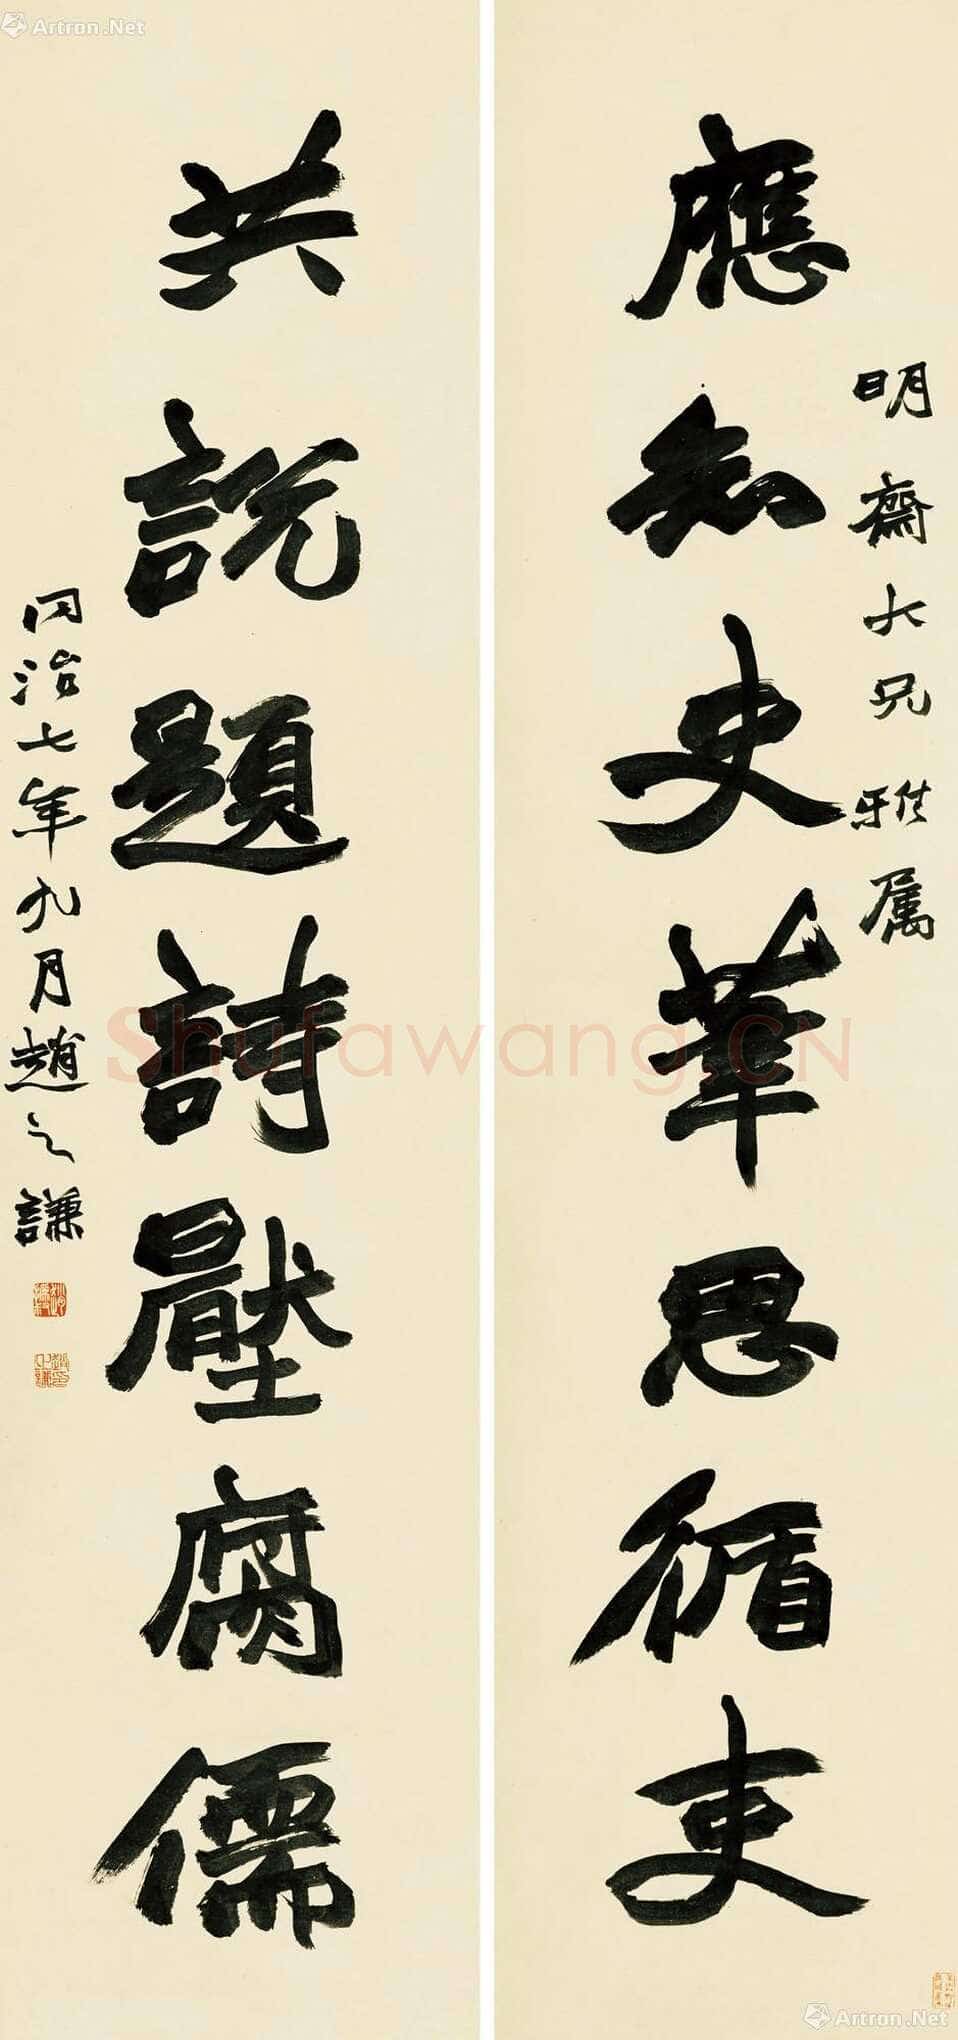 明齋大兄雅属
應知史華思循吏
共說題詩壓腐儒
同治七年九月趙之謙
Artron.Net
Shufawang.CN
Artron.Net